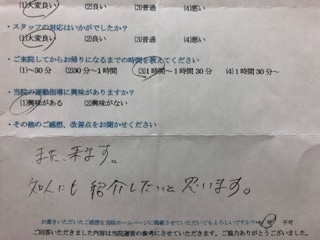 (1)大変良い (2)良い (3)普通 (4)悪い
・スタッフの対応はいかがでしたか?
(1)大変良い (2)良い (3)普通 (4)悪い
・ご来院してからお帰りになるまでの時間を教えてください
(1)～30分 (2)30分～1時間 (3)1時間～1時間30分 (4)1時間30分～
・当院の運動指導に興味がありますか?
(1)興味がある (2)興味がない
・その他のご感想、改善点をお聞かせください
また、来ます。
知人にも紹介したいと思います。
お書きいただいたご感想を当院ホームページに掲載させていただいてもよろしいですか? 可 不可
ご回答いただきました内容は当院運営の参考にさせていただきます。ご協力ありがとうございました。